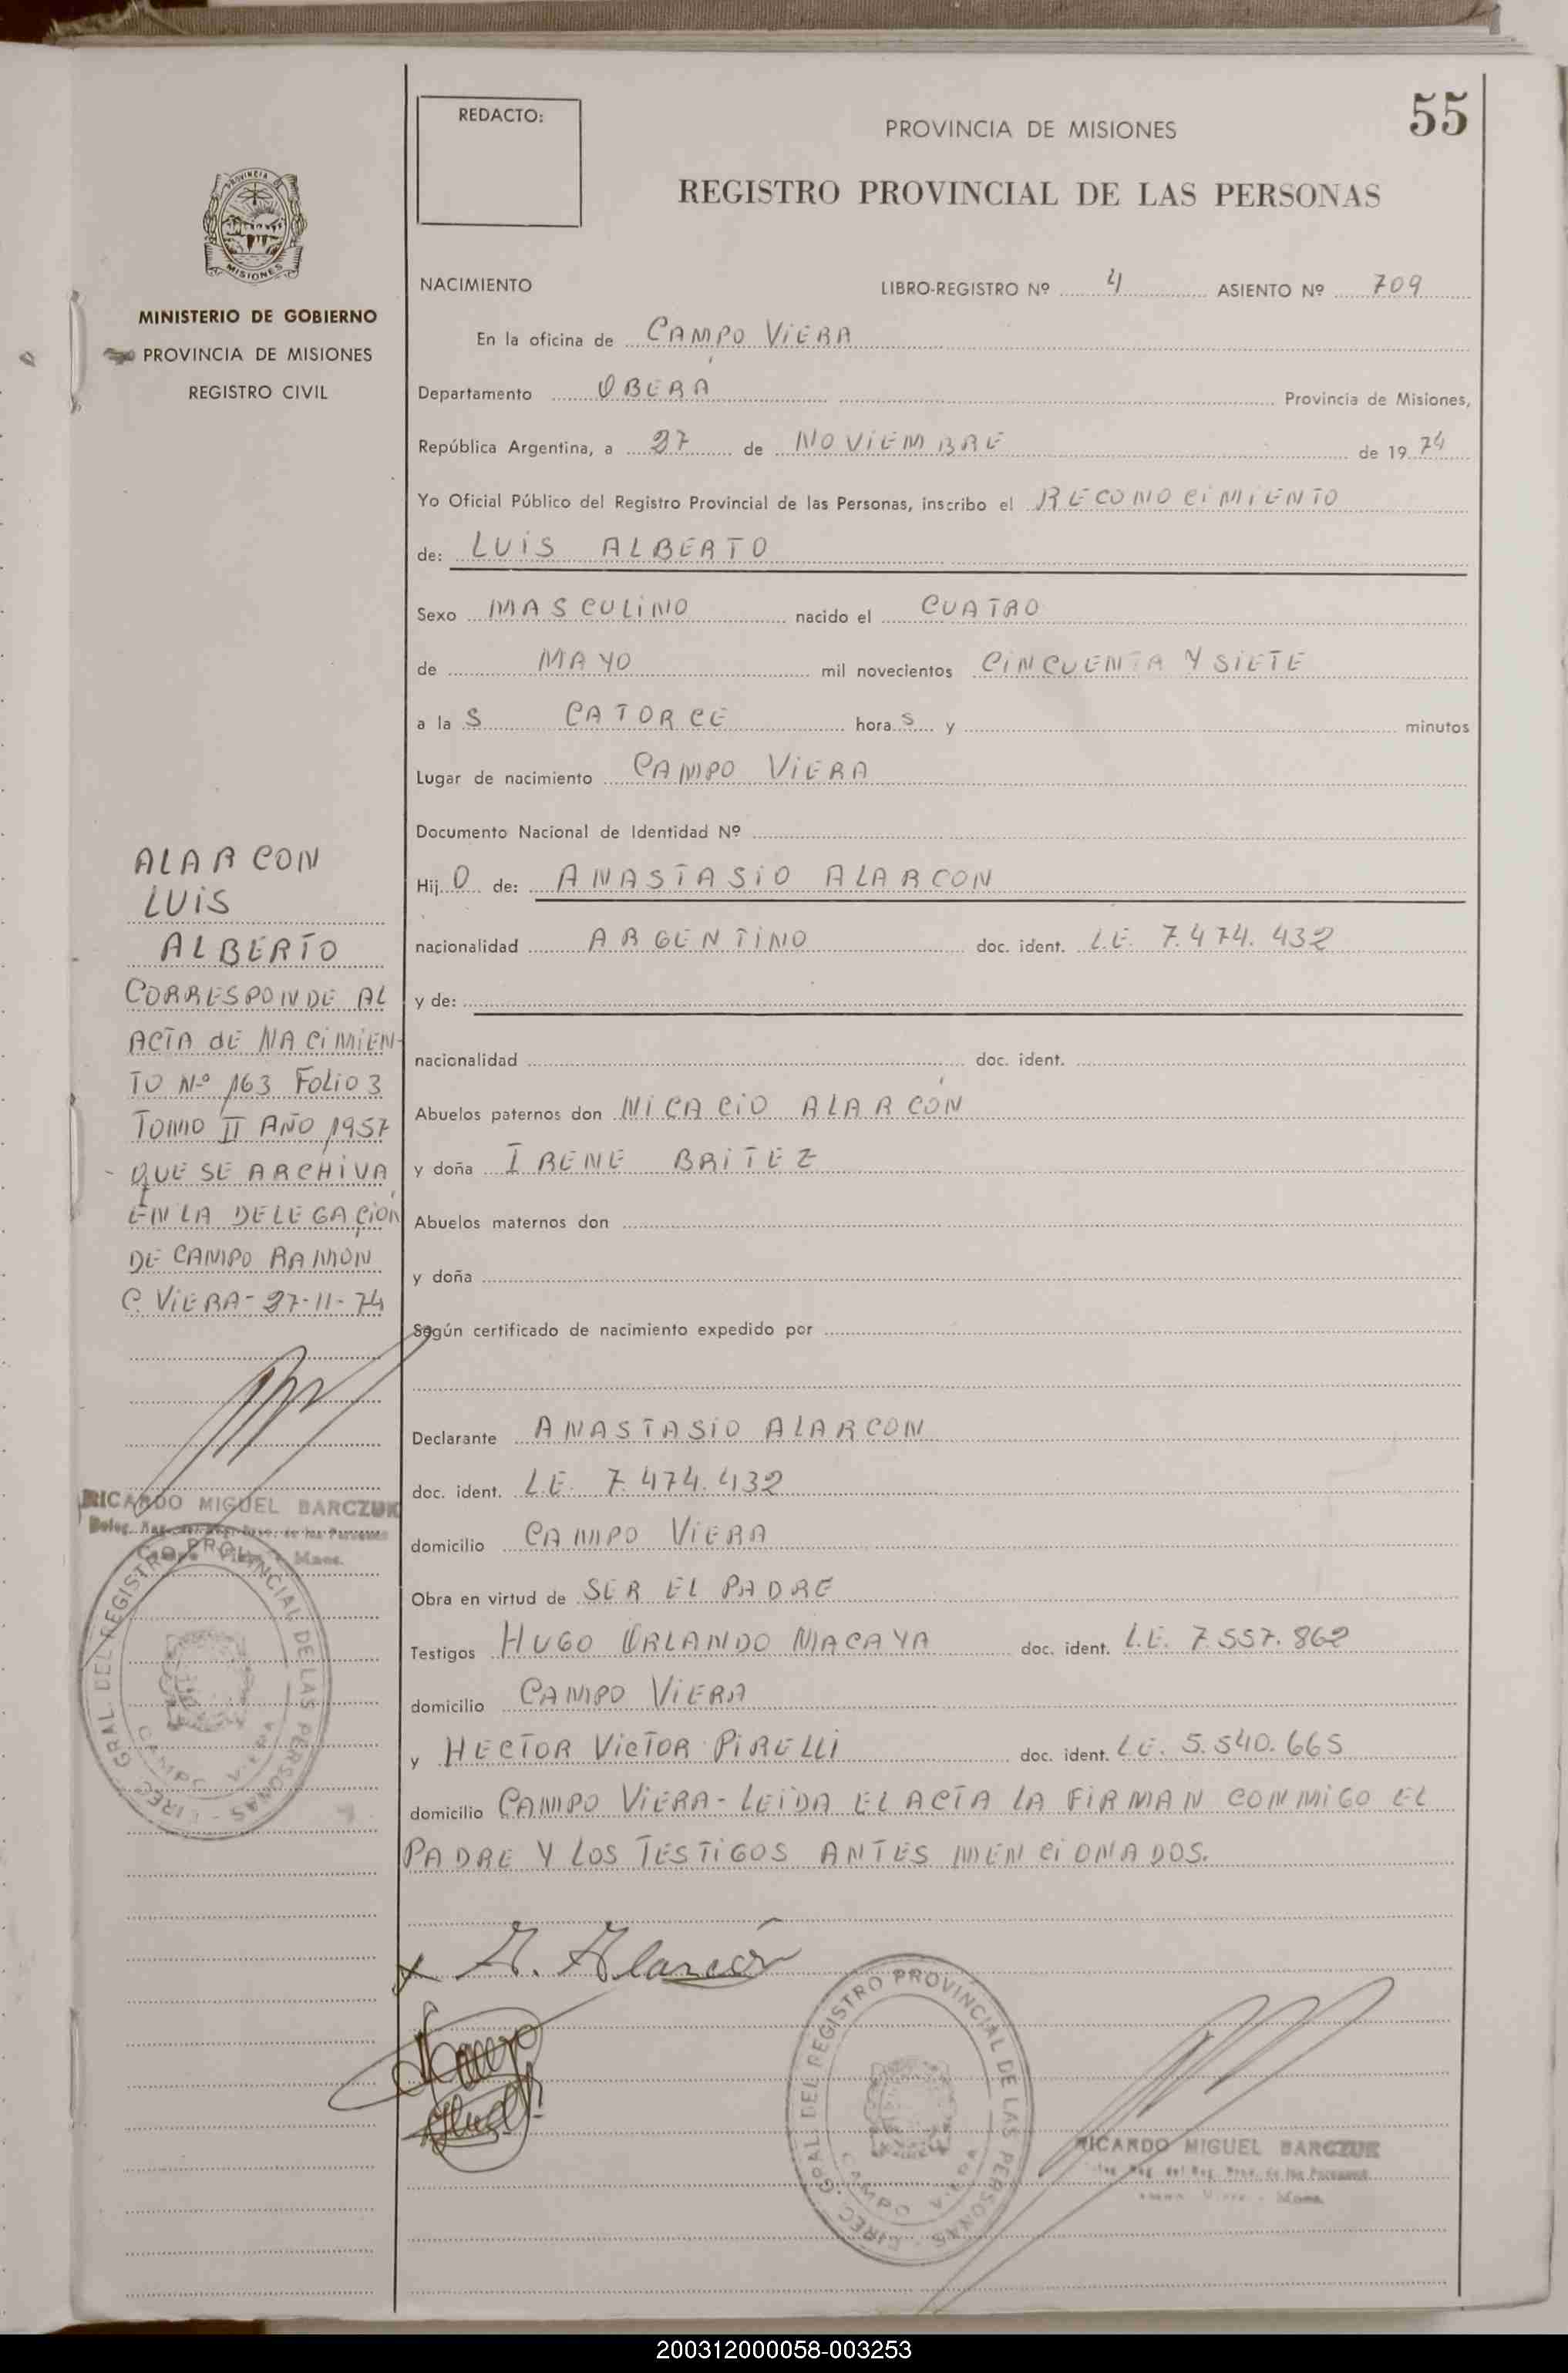 55
REDACTO:
PROVINCIA DE MISIONES
REGISTRO PROVINCIAL DE LAS PERSONAS
PROVINCIA DE
MISIONES
MINISTERIO DE GOBIERNO
PROVINCIA DE MISIONES
REGISTRO CIVIL
NACIMIENTO LIBRO-REGISTRO Nº 4 ASIENTO Nº 709
En la oficina de CAMPO VIERA
Departamento OBERÁ Provincia de Misiones,
República Argentina, a 27 de NOVIEMBRE de 1974
Yo Oficial Público del Registro Provincial de las Personas, inscribo el RECONOCIMIENTO
de: LUIS ALBERTO
Sexo MASCULINO nacido el CUATRO
de MAYO mil novecientos CINCUENTA Y SIETE
a las CATORCE horas y minutos
Lugar de nacimiento CAMPO VIERA
Documento Nacional de Identidad Nº
Hijo de: ANASTASIO ALARCON
nacionalidad ARGENTINO doc. ident. L.E. 7.474.432
y de:
nacionalidad doc. ident.
Abuelos paternos don NICACIO ALARCÓN
y doña IRENE BRITEZ
Abuelos maternos don
y doña
Según certificado de nacimiento expedido por
Declarante ANASTASIO ALARCON
doc. ident. L.E. 7.474.432
domicilio CAMPO VIERA
Obra en virtud de SER EL PADRE
Testigos HUGO ORLANDO MACAYA doc. ident. L.E. 7.557.862
domicilio CAMPO VIERA
y HECTOR VICTOR PIRELLI doc. ident. L.E. 5.540.665
domicilio CAMPO VIERA - LEIDA EL ACTA LA FIRMAN CONMIGO EL
PADRE Y LOS TESTIGOS ANTES MENCIONADOS.
ALARCON
LUIS
ALBERTO
CORRESPONDE AL
ACTA de NACIMIEN-
TO Nº 163 FOLIO 3
TOMO II AÑO 1957
QUE SE ARCHIVA
EN LA DELEGACIÓN
DE CAMPO RAMÓN
C. VIERA - 27-11-74
RICARDO MIGUEL BARCZUK
Deleg. Reg. del Reg. Prov. de las Personas
Campo Viera - Mnes.
DIREC. GRAL. DEL REGISTRO PROVINCIAL DE LAS PERSONAS
CAMPO VIERA
x A. Alarcón
DIREC. GRAL. DEL REGISTRO PROVINCIAL DE LAS PERSONAS
CAMPO VIERA
RICARDO MIGUEL BARCZUK
Deleg. Reg. del Reg. Prov. de las Personas
Campo Viera - Mnes.
200312000058-003253